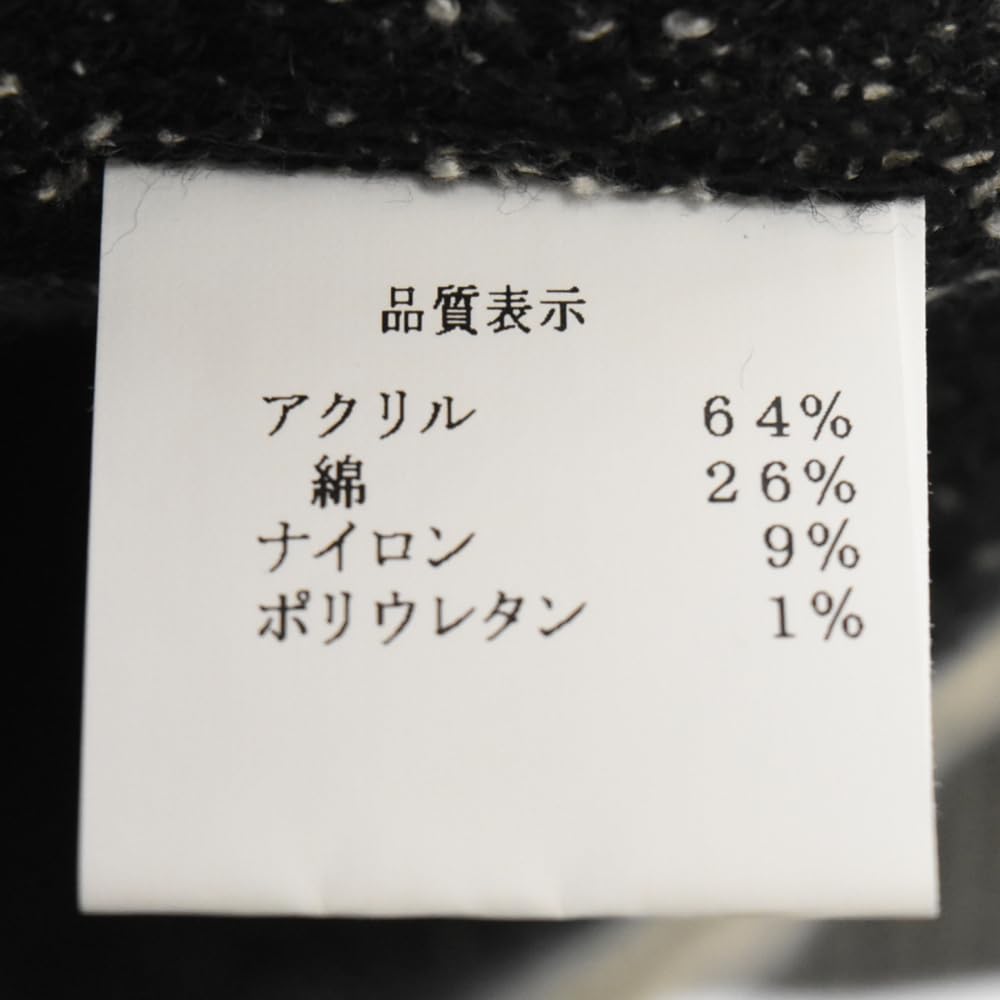 品質表示
アクリル 64%
綿 26%
ナイロン 9%
ポリウレタン 1%